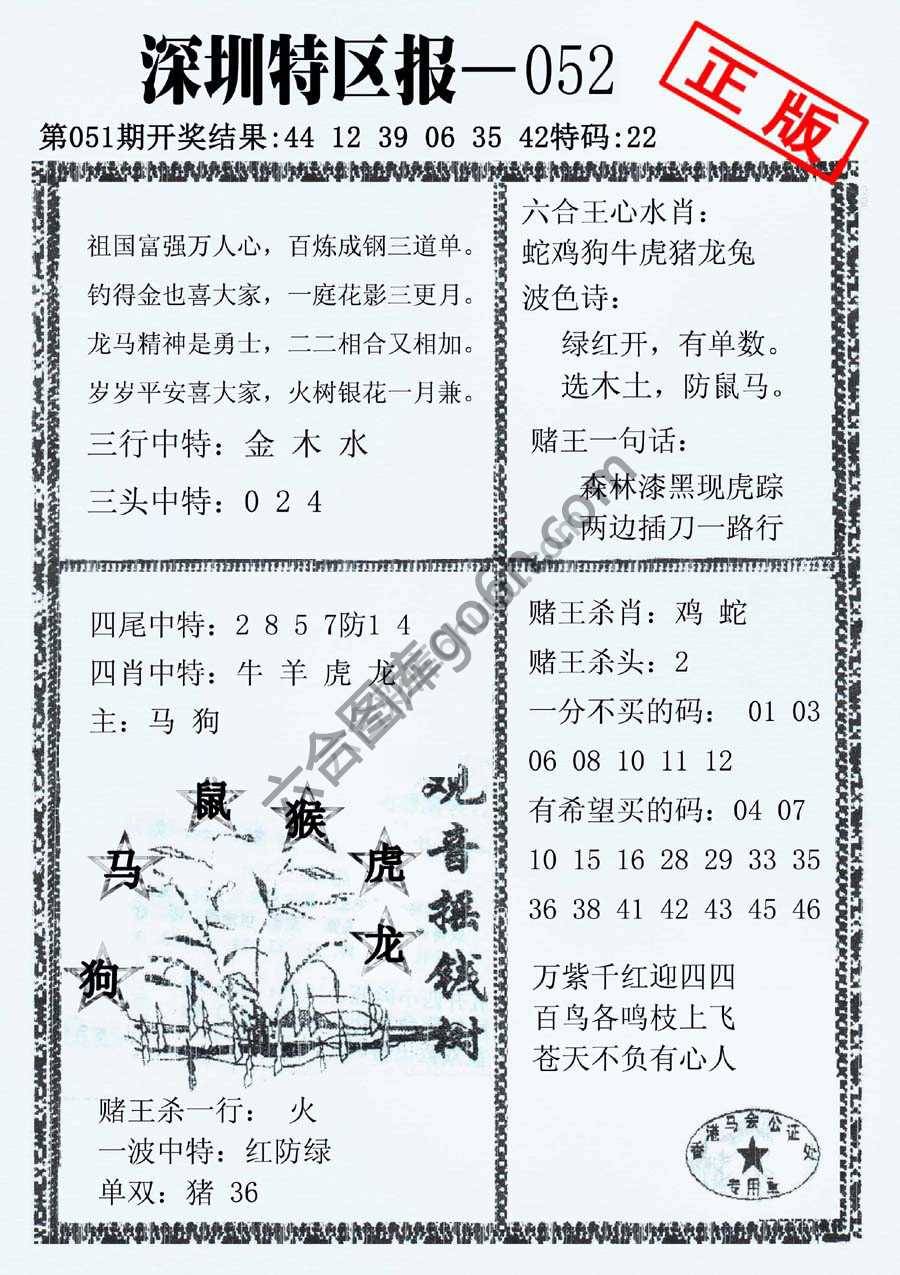 深圳特区报—052
正版
第051期开奖结果:44 12 39 06 35 42特码:22
祖国富强万人心，百炼成钢三道单。
钓得金也喜大家，一庭花影三更月。
龙马精神是勇士，二二相合又相加。
岁岁平安喜大家，火树银花一月兼。
三行中特：金 木 水
三头中特：0 2 4
六合王心水肖：
蛇鸡狗牛虎猪龙兔
波色诗：
绿红开，有单数。
选木土，防鼠马。
赌王一句话：
森林漆黑现虎踪
两边插刀一路行
四尾中特：2 8 5 7防1 4
四肖中特：牛 羊 虎 龙
主：马 狗
鼠
猴
马
虎
龙
狗
观音摇钱树
赌王杀一行： 火
一波中特：红防绿
单双：猪 36
赌王杀肖：鸡 蛇
赌王杀头：2
一分不买的码： 01 03
06 08 10 11 12
有希望买的码：04 07
10 15 16 28 29 33 35
36 38 41 42 43 45 46
万紫千红迎四四
百鸟各鸣枝上飞
苍天不负有心人
香港马会公证处
专用章
六合图库go6h.com